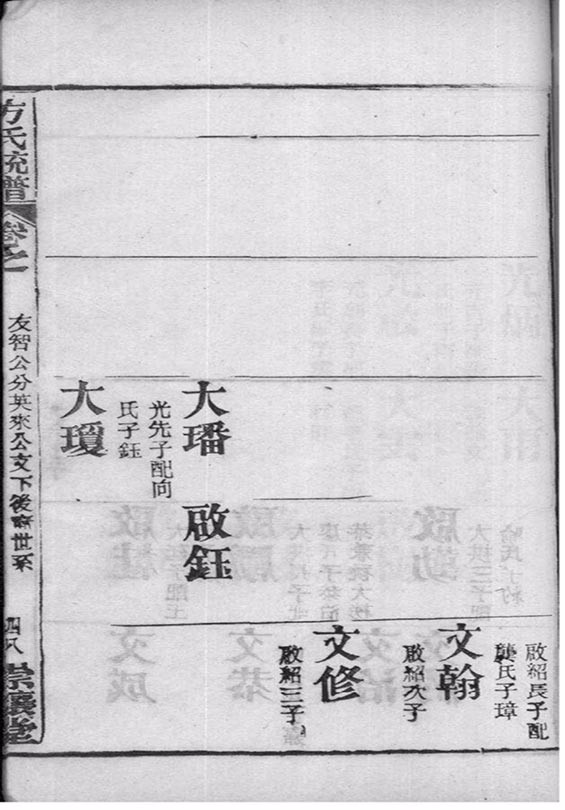 啟紹長子配
龔氏子璋
文翰
啟紹次子
文修
啟紹三子
大璠
啟鈺
光先子配向
氏子鈺
大瓊
方氏統譜
卷之一
友智公分英來公支下後裔世系
四八
崇儒堂